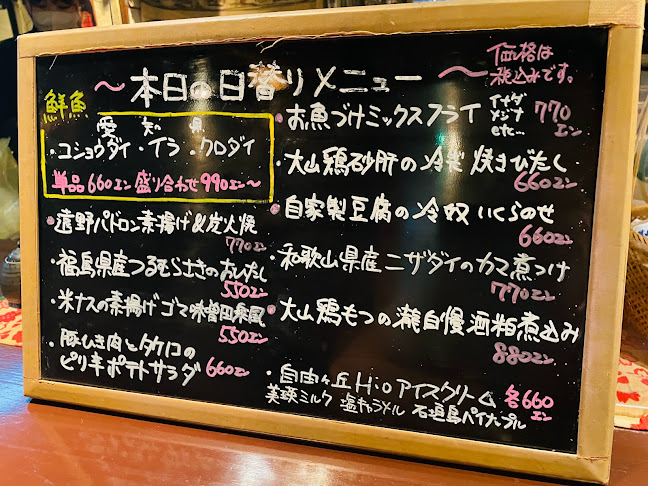 ~本日の日替りメニュー~
価格は
税込みです。
鮮魚
愛知県
・コショウダイ・イラ・クロダイ
単品660エン盛り合わせ990エン~
・遠野パドロン素揚げ&炭火焼
770エン
・福島県産つるむらさきのおひたし
550エン
・米ナスの素揚げゴマ味噌田楽風
550エン
・豚ひき肉とタケノコの
ピリ辛ポテトサラダ 660エン
・お魚づけミックスフライ
イナダ
メジナ
etc…
770
エン
・大山鶏砂肝の冷製 焼きびたし
660エン
・自家製豆腐の冷奴 いくらのせ
660エン
・和歌山県産ニザダイのカマ煮つけ
770エン
・大山鶏もつの瀧自慢酒粕煮込み
880エン
・自由が丘Hioアイスクリーム 各660
エン
美瑛ミルク 塩キャラメル 石垣島パイナップル